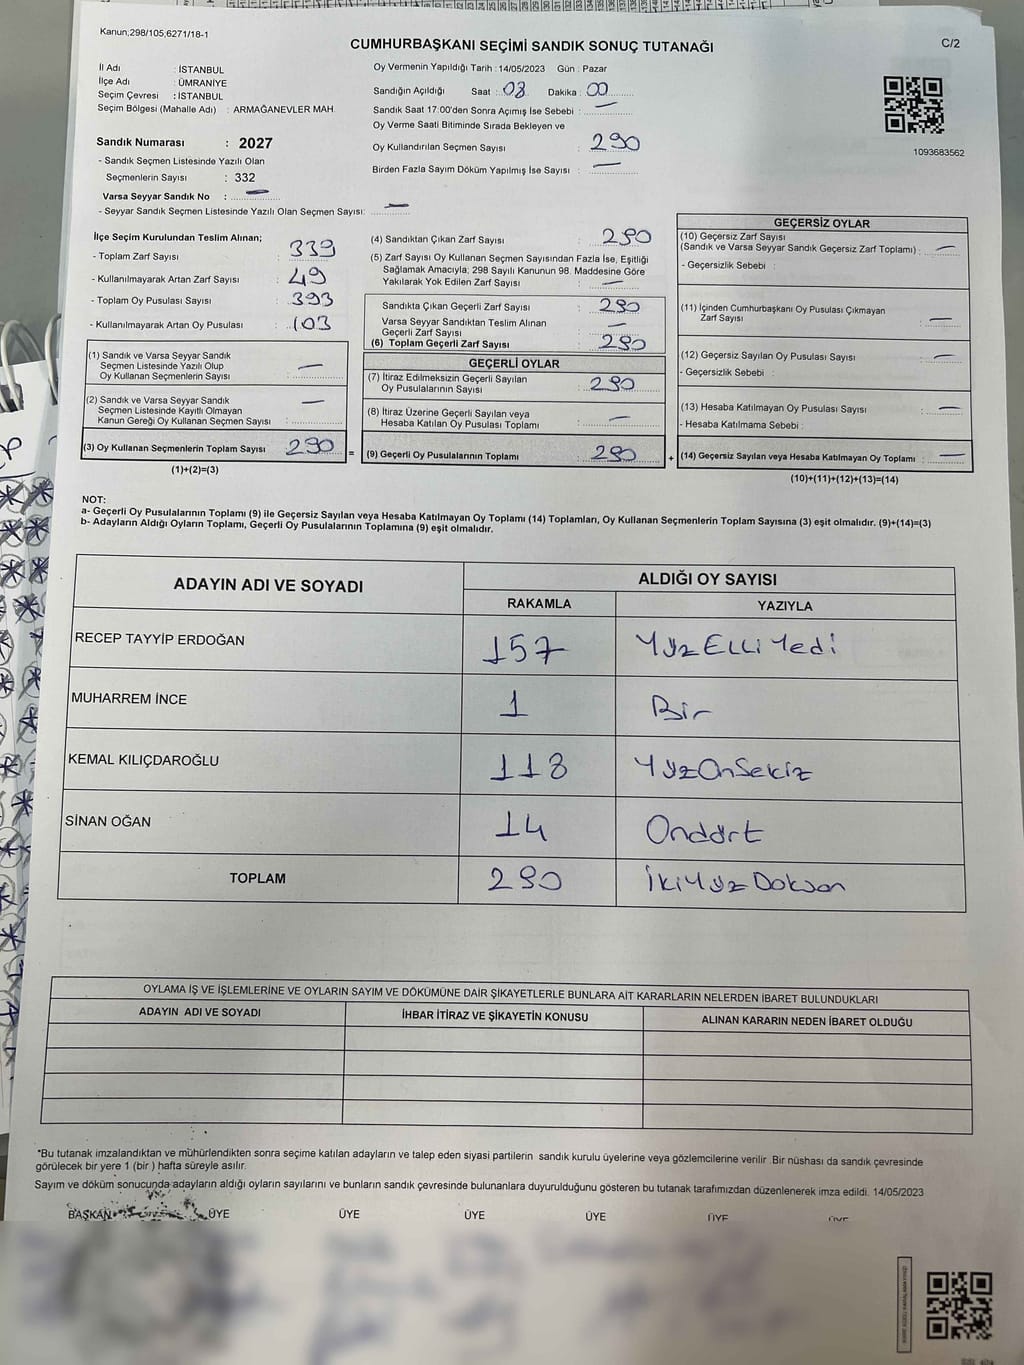 Kanun;298/105;6271/18-1
C/2
CUMHURBAŞKANI SEÇİMİ SANDIK SONUÇ TUTANAĞI
İl Adı : İSTANBUL
İlçe Adı : ÜMRANİYE
Seçim Çevresi : İSTANBUL
Seçim Bölgesi (Mahalle Adı) : ARMAĞANEVLER MAH.
Sandık Numarası : 2027
- Sandık Seçmen Listesinde Yazılı Olan
Seçmenlerin Sayısı : 332
Varsa Seyyar Sandık No : —
- Seyyar Sandık Seçmen Listesinde Yazılı Olan Seçmen Sayısı: —
Oy Vermenin Yapıldığı Tarih : 14/05/2023 Gün : Pazar
Sandığın Açıldığı Saat : 08 Dakika : 00
Sandık Saat 17:00'den Sonra Açımış İse Sebebi : —
Oy Verme Saati Bitiminde Sırada Bekleyen ve
Oy Kullandırılan Seçmen Sayısı : 290
Birden Fazla Sayım Döküm Yapılmış İse Sayısı : —
1093683562
İlçe Seçim Kurulundan Teslim Alınan;
- Toplam Zarf Sayısı : 339
- Kullanılmayarak Artan Zarf Sayısı : 49
- Toplam Oy Pusulası Sayısı : 393
- Kullanılmayarak Artan Oy Pusulası : 103
(1) Sandık ve Varsa Seyyar Sandık
Seçmen Listesinde Yazılı Olup
Oy Kullanan Seçmenlerin Sayısı : —
(2) Sandık ve Varsa Seyyar Sandık
Seçmen Listesinde Kayıtlı Olmayan
Kanun Gereği Oy Kullanan Seçmen Sayısı : —
(3) Oy Kullanan Seçmenlerin Toplam Sayısı 290
(1)+(2)=(3)
=
(4) Sandıktan Çıkan Zarf Sayısı : 290
(5) Zarf Sayısı Oy Kullanan Seçmen Sayısından Fazla İse, Eşitliği
Sağlamak Amacıyla; 298 Sayılı Kanunun 98. Maddesine Göre
Yakılarak Yok Edilen Zarf Sayısı : —
Sandıkta Çıkan Geçerli Zarf Sayısı : 290
Varsa Seyyar Sandıktan Teslim Alınan
Geçerli Zarf Sayısı : —
(6) Toplam Geçerli Zarf Sayısı : 290
GEÇERLİ OYLAR
(7) İtiraz Edilmeksizin Geçerli Sayılan
Oy Pusulalarının Sayısı : 290
(8) İtiraz Üzerine Geçerli Sayılan veya
Hesaba Katılan Oy Pusulası Toplamı : —
(9) Geçerli Oy Pusulalarının Toplamı : 290
+
GEÇERSİZ OYLAR
(10) Geçersiz Zarf Sayısı
(Sandık ve Varsa Seyyar Sandık Geçersiz Zarf Toplamı) : —
- Geçersizlik Sebebi :
(11) İçinden Cumhurbaşkanı Oy Pusulası Çıkmayan
Zarf Sayısı : —
(12) Geçersiz Sayılan Oy Pusulası Sayısı : —
- Geçersizlik Sebebi :
(13) Hesaba Katılmayan Oy Pusulası Sayısı : —
- Hesaba Katılmama Sebebi :
(14) Geçersiz Sayılan veya Hesaba Katılmayan Oy Toplamı : —
(10)+(11)+(12)+(13)=(14)
NOT:
a- Geçerli Oy Pusulalarının Toplamı (9) ile Geçersiz Sayılan veya Hesaba Katılmayan Oy Toplamı (14) Toplamları, Oy Kullanan Seçmenlerin Toplam Sayısına (3) eşit olmalıdır. (9)+(14)=(3)
b- Adayların Aldığı Oyların Toplamı, Geçerli Oy Pusulalarının Toplamına (9) eşit olmalıdır.
ADAYIN ADI VE SOYADI
ALDIĞI OY SAYISI
RAKAMLA YAZIYLA
RECEP TAYYİP ERDOĞAN 157 YüzElliYedi
MUHARREM İNCE 1 Bir
KEMAL KILIÇDAROĞLU 118 YüzOnSekiz
SİNAN OĞAN 14 Ondört
TOPLAM 290 İkiYüzDoksan
OYLAMA İŞ VE İŞLEMLERİNE VE OYLARIN SAYIM VE DÖKÜMÜNE DAİR ŞİKAYETLERLE BUNLARA AİT KARARLARIN NELERDEN İBARET BULUNDUKLARI
ADAYIN ADI VE SOYADI İHBAR İTİRAZ VE ŞİKAYETİN KONUSU ALINAN KARARIN NEDEN İBARET OLDUĞU
*Bu tutanak imzalandıktan ve mühürlendikten sonra seçime katılan adayların ve talep eden siyasi partilerin sandık kurulu üyelerine veya gözlemcilerine verilir .Bir nüshası da sandık çevresinde
görülecek bir yere 1 (bir ) hafta süreyle asılır.
Sayım ve döküm sonucunda adayların aldığı oyların sayılarını ve bunların sandık çevresinde bulunanlara duyurulduğunu gösteren bu tutanak tarafımızdan düzenlenerek imza edildi. 14/05/2023
BAŞKAN ÜYE ÜYE ÜYE ÜYE ÜYE ÜYE